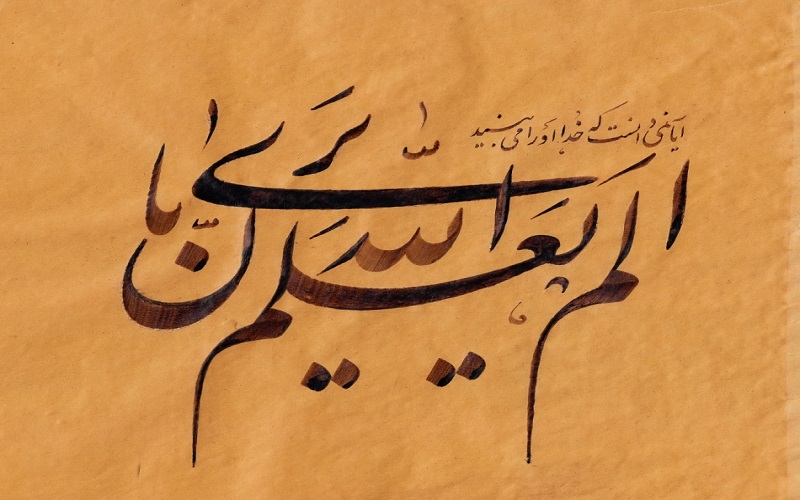 آیا نمی دانست که خدا او را می بیند
الم یعلم بانّ اللّٰه یَری